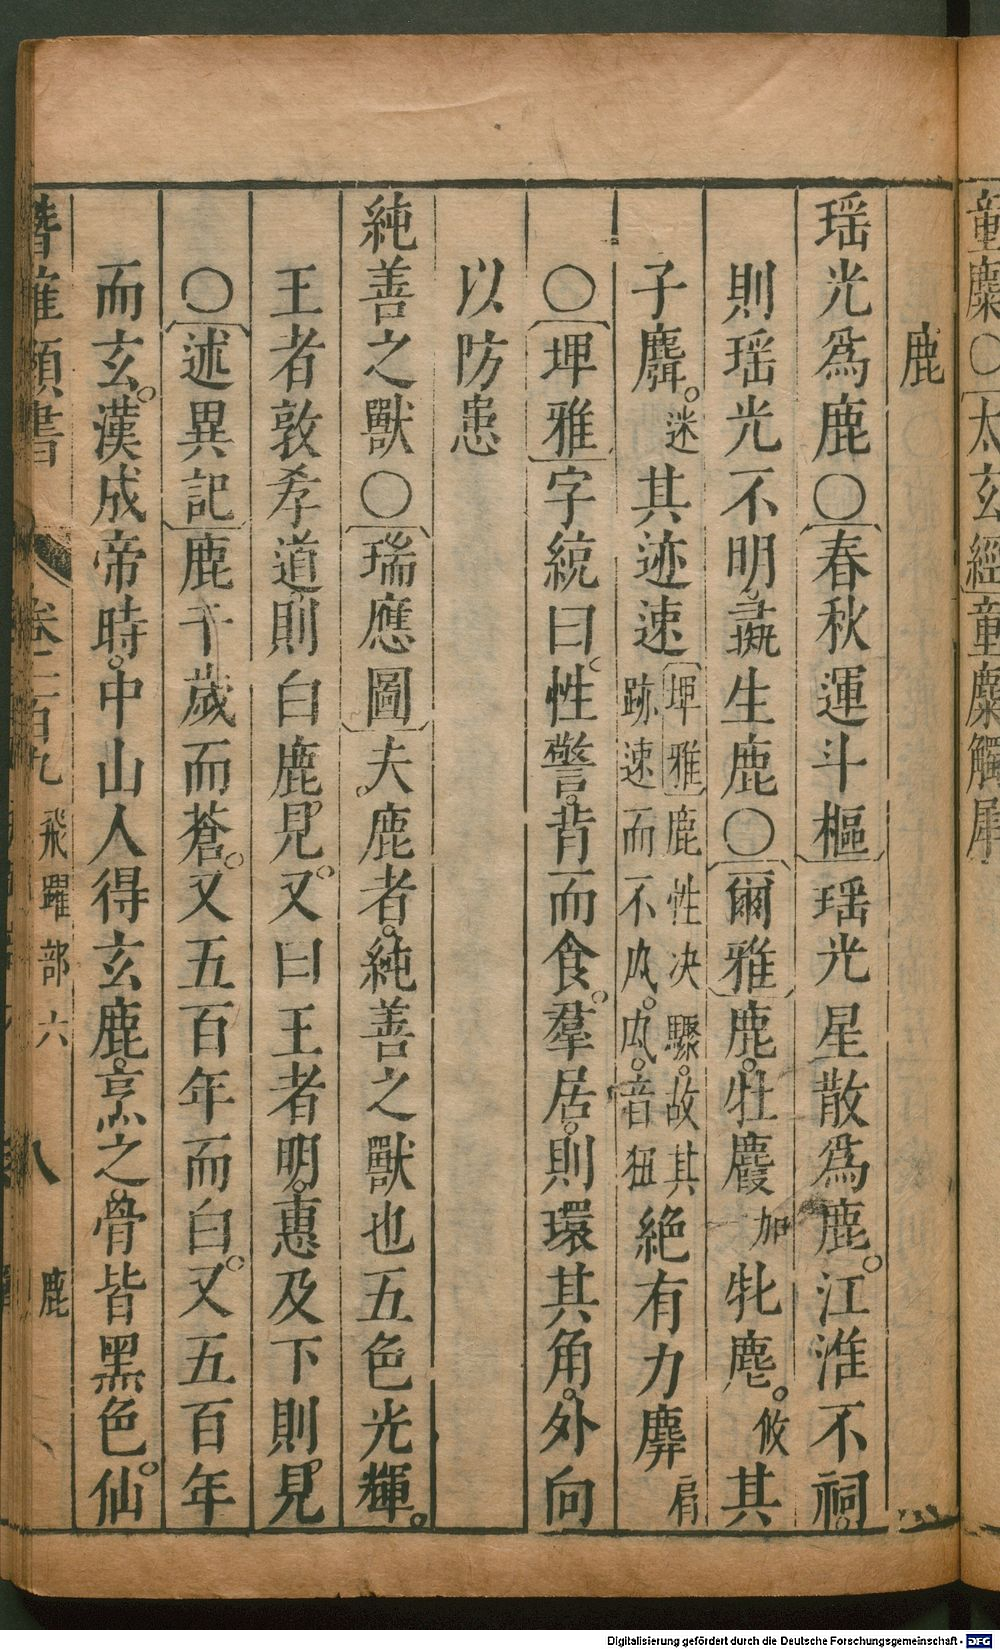 童麋○太玄經童麋觸犀
鹿
瑶光爲鹿○春秋運斗樞瑶光星散爲鹿。江淮不祠。
則瑶光不明。彛生鹿○爾雅鹿。牡麚加牝麀。攸其
子麛。迷其迹速埤雅鹿性决驟。故其跡速而不䖝。音狃絶有力麉肩
○埤雅字統曰。性警。背而食。羣居。則環其角。外向
以防患
純善之獸○瑞應圖夫鹿者。純善之獸也五色光輝。
王者敦孝道則白鹿見。又曰王者明。惠及下則。見
○述異記鹿千歲而蒼。又五百年而白。又五百年
而玄。漢成帝時。中山人得玄鹿。烹之骨皆黑色。仙
潛確類書 卷一百九 飛躍部六 八 鹿
Digitalisierung gefördert durch die Deutsche Forschungsgemeinschaft - DFG